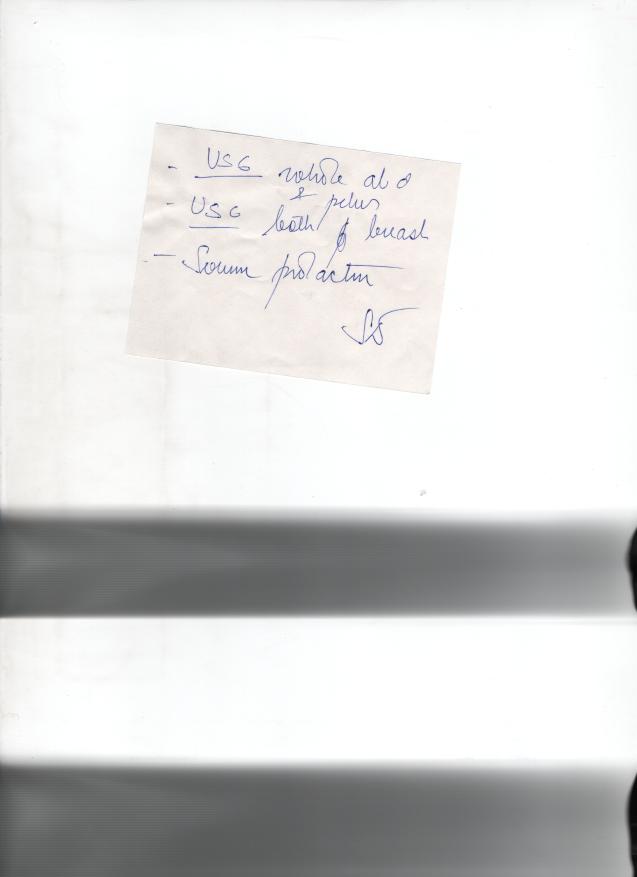 - USG whole abd
& pelvis
- USG both breast
- Serum prolactin